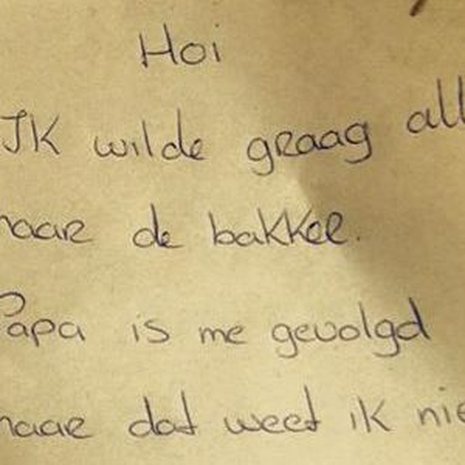 Hoi
IK wilde graag all
naar de bakker.
Papa is me gevolgd
maar dat weet ik nie